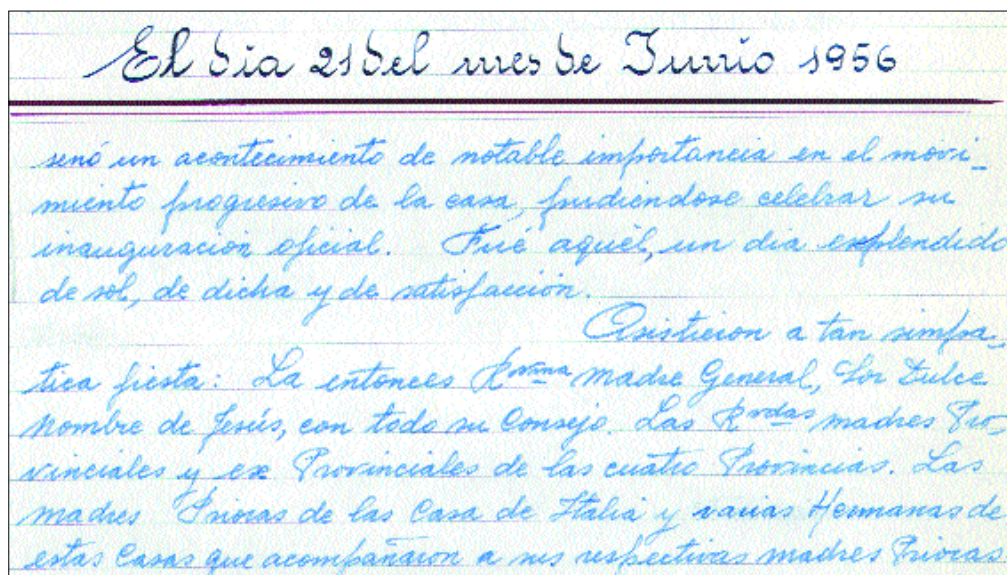 El dia 21 del mes de Junio 1956
senó un acontecimiento de notable importancia en el movi-
miento progresivo de la casa, pudiendose celebrar su
inauguracion oficial. Fué aquèl, un dia explendido
de sol, de dicha y de satisfacción.
Asistieron a tan simpa-
tica fiesta: La entonces Rvma madre General, Sor Dulce
Nombre de Jesús, con todo su Consejo. Las Rvdas madres Pro-
vinciales y ex Provinciales de las cuatro Provincias. Las
madres Prioras de las Casa de Italia y varias Hermanas de
estas Casas que acompañaron a sus respectivas madres Prioras